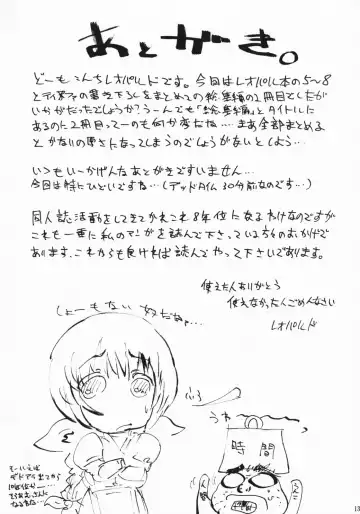 あとがき。
どーもこんちレオパルドです。今回はレオパル本の5～8
とディアファの書き下ろしをまとめての総集編の2冊目でしたが
いかがだったでしょうか?うーんでも「総集編」とタイトルに
あるのに2冊目ってーのも何か変だな…まあ全部まとめる
とかないの厚さになってしまうのでしょうがないとしよう…
いつもいーかげんなあとがきですいません…
今回は特にひどいですね…(デッドタイム30分前なのです…)
同人誌活動をしてきてかれこれ8年位になるわけなのですが
これも一重に私のマンガを読んで下さっている方々のおかげで
あります。これからも良ければ読んでやって下さいであります。
使えた人ありがとう
使えなかった人ごめんなさい
レオパルド
しょーもない奴だねェ…
うわ
時間
もーいえば